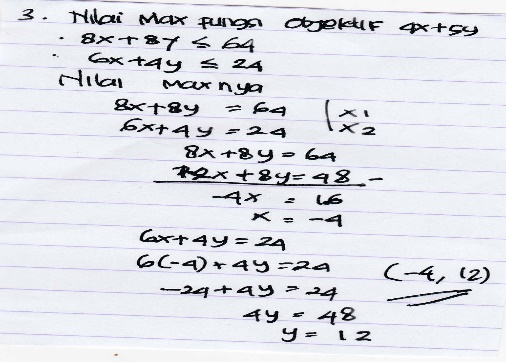 3. Nilai Max fungsi objektif 4x+5y
· 8x+8y ≤ 64
· 6x+4y ≤ 24
Nilai maxnya
8x+8y = 64 | x1
6x+4y = 24 | x2
8x+8y = 64
12x+8y = 48 -
-4x = 16
x = -4
6x+4y = 24
6(-4)+4y = 24
-24+4y = 24
4y = 48
y = 12
(-4, 12)